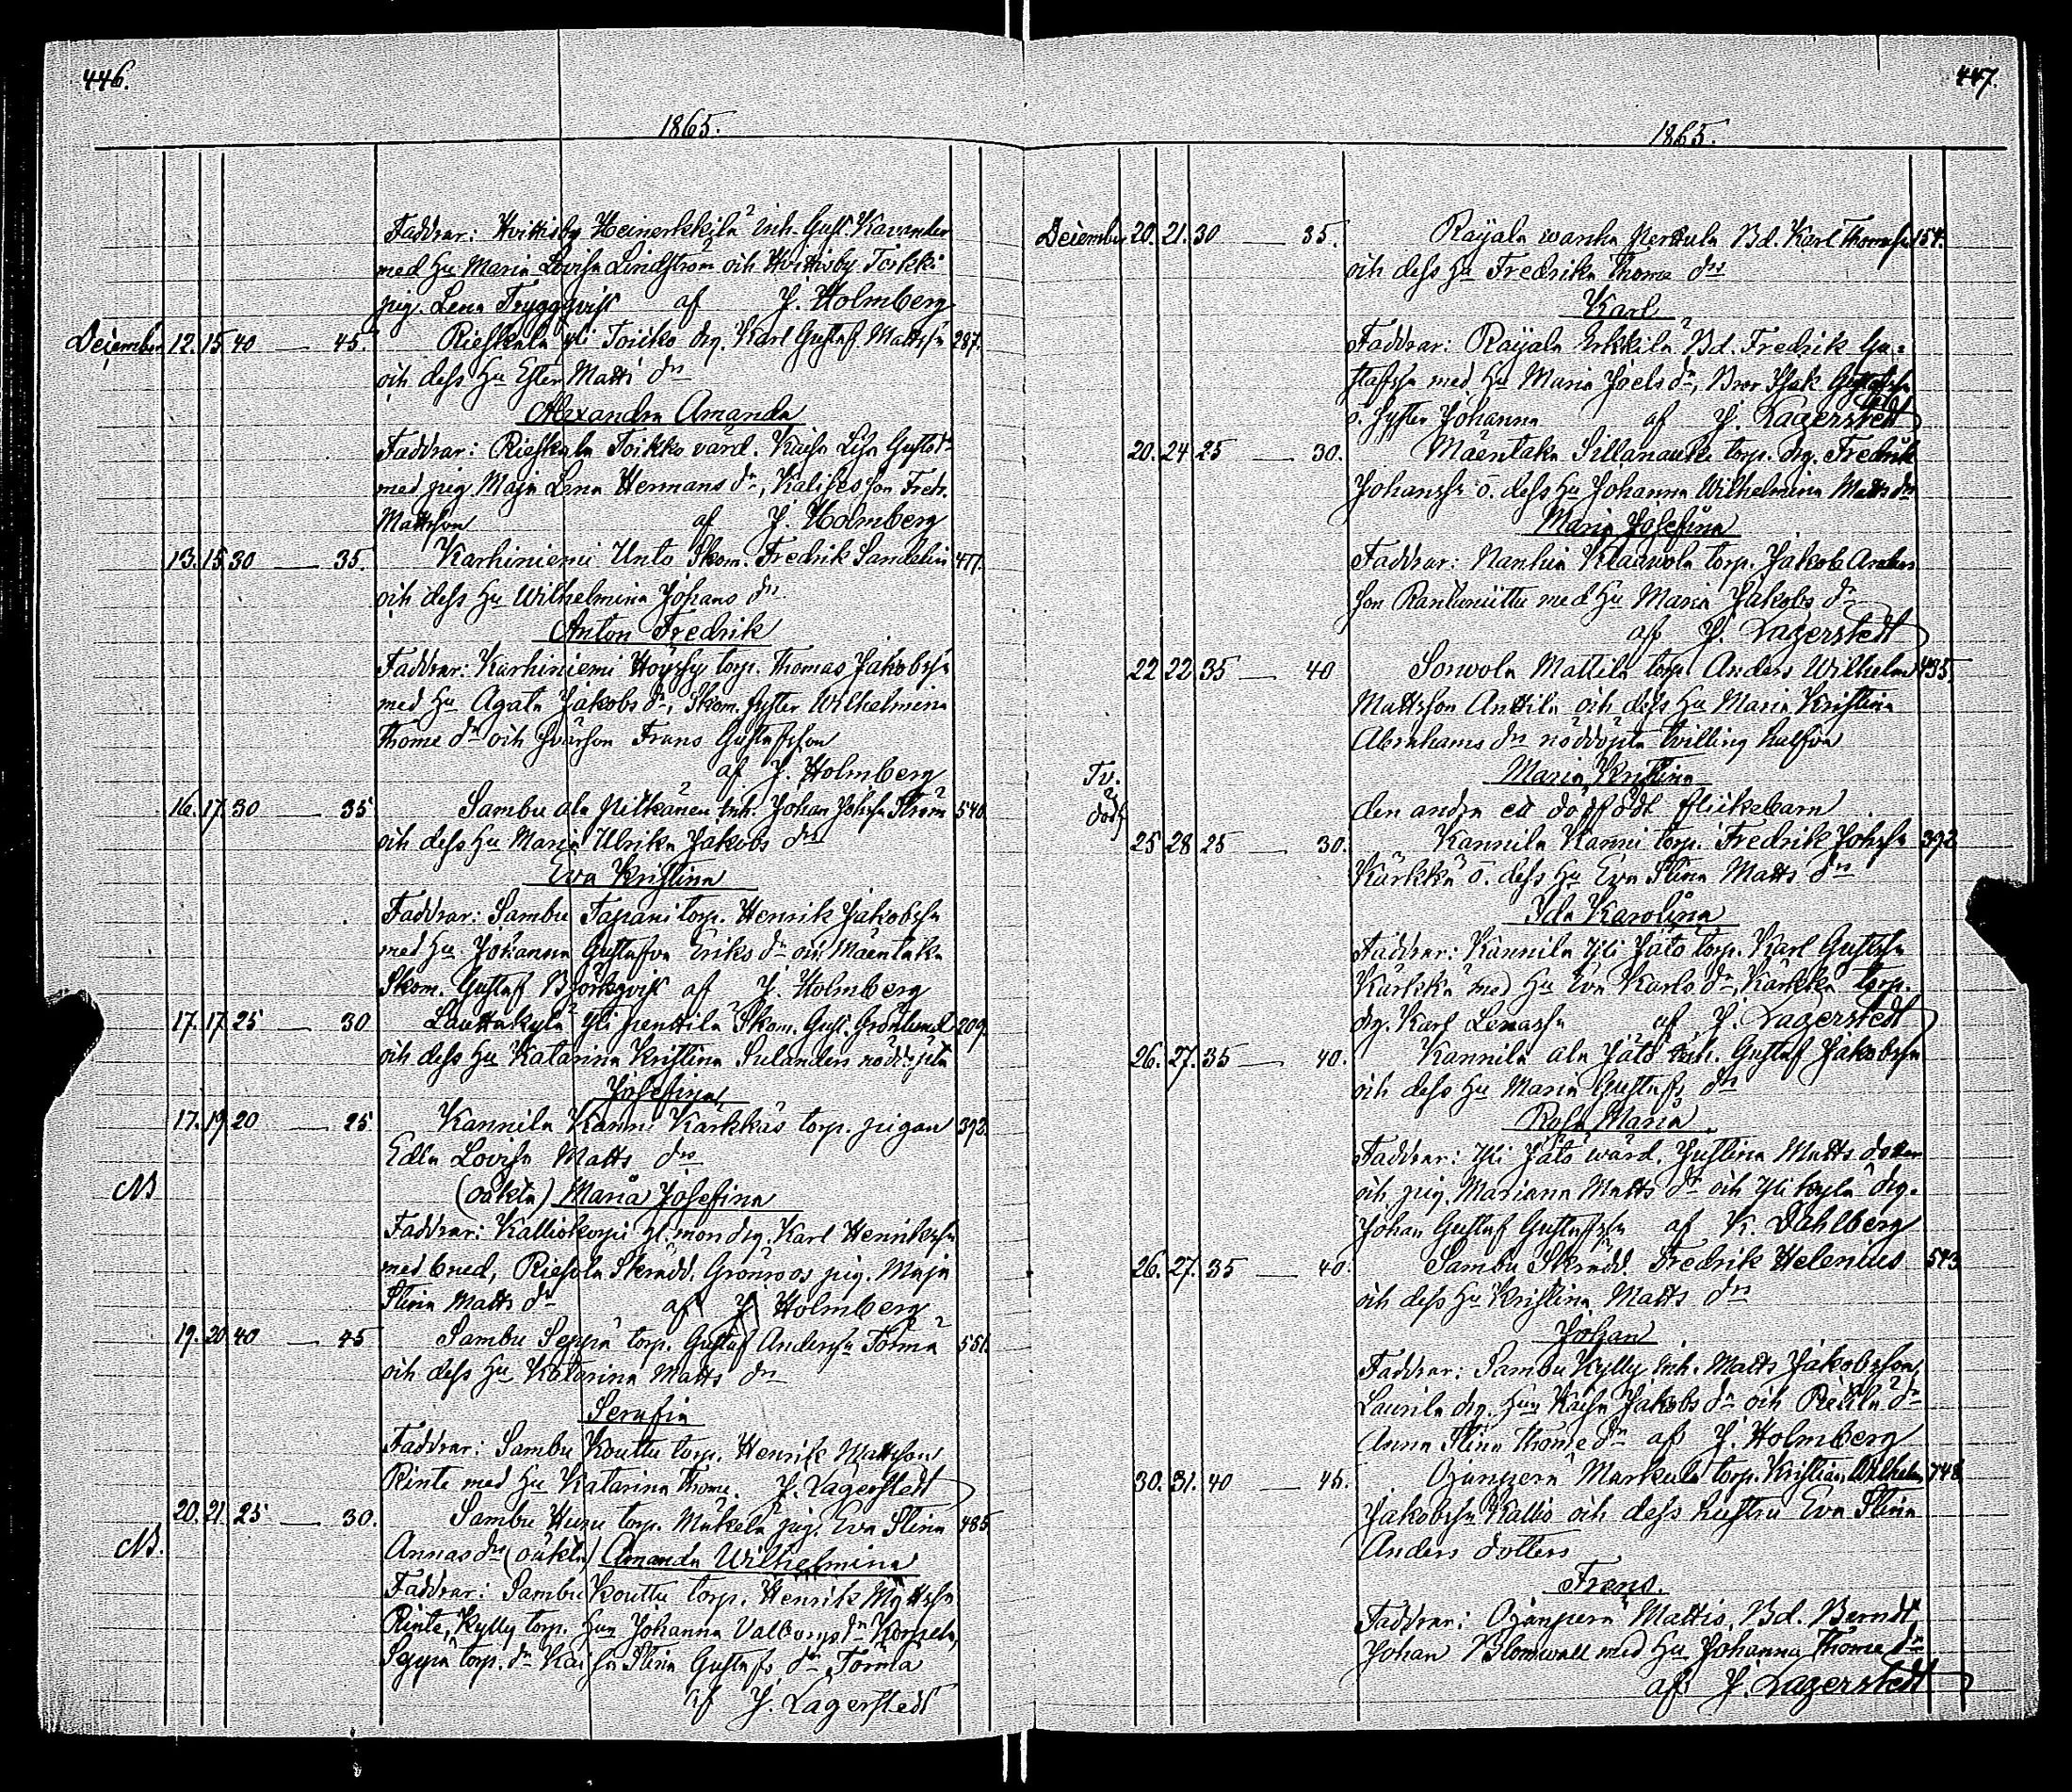 446.
1865.
Faddrar: Hvittisby Heinerkkilä inh. Gust. Kavander
med Hu Maria Lovisa Lindström och Hvittisby Toikki
pig. Lena Tryggqvist af J. Holmberg
December 12. 15. 40 — 45. Rieskala yli Toikko drg. Karl Gustaf Mattssn 287.
och dess Hu Ester Matts dr
Alexandra Amanda
Faddrar: Rieskala Toikko värd. Kaisa Lisa Gustsdr
med pig Maja Lena Hermans dr, Kalises son Fredr.
Mattsson af J. Holmberg
13. 15. 30 — 35. Karhiniemi Unto Skom. Fredrik Sandelin 477.
och dess Hu Wilhelmina Johans dr
Anton Fredrik
Faddrar: Karhiniemi Höyssy torp. Thomas Jakobssn
med Hu Agata Jakobs dr, Skom. syster Wilhelmina
Thome dr och svärson Frans Gustafsson
af J. Holmberg
16. 17. 30 — 35 Sambu ala Pitkänen inh. Johan Johssn Ström 540.
och dess Hu Maria Ulrika Jakobs dr
Eva Kristina
Faddrar: Sambu Tapani torp. Henrik Jakobssn
med Hu Johanna Gustafva Eriks dr och Mäentaka
Skom. Gustaf Björkqvist af J. Holmberg
17. 17. 25 — 30 Lauttakylä yli Penttilä Skom. Gust. Grönlund 209.
och dess Hu Katarina Kristina Sulanders nöddöpta
Josefina
17. 19. 20 — 25 Kannila Kanni Kärkkäs torp. pigan 392.
Edla Lovisa Matts drs
(oäkta) Maria Josefina
Faddrar: Kalliokorpi gl. mon drg. Karl Henrikssn
med brud, Riesola Skrädd. Grönroos pig. Maja
Stina Matts dr af J. Holmberg
19. 20. 40 — 45 Sambu Seppä torp. Gustaf Anderssn Törmä 551.
och dess Hu Katarina Matts dr
Serafia
Faddrar: Sambu Kouttu torp. Henrik Mattsson
Rinte med Hu Katarina Thome. J. Lagerstedt
20. 21. 25 — 30. Sambu Huru torp. Mäkelä pig. Eva Stina 485
Annas dr (oäkta) Amanda Wilhelmina
Faddrar: Sambu Kouttu torp. Henrik Mattssn
Rinte, Kylly torp. Hu Johanna Valborgs dr Korpela,
Seppä torp. dr Kaisa Stina Gustafs dr Törmä
af J. Lagerstedt
447.
1865.
December 20. 21. 30 — 35. Raijala wanha Perttula Bd. Karl Thomassn 154.
och dess Hu Fredrika Thome drs
Karl
Faddrar: Raijala Erkkilä Bd. Fredrik Gu-
stafssn med Hu Maria Joels dr, Bror Isak Gustafssn
o. syster Johanna af J. Lagerstedt
20. 24. 25 — 30. Mäentaka Sillanauke torp. drg. Fredrik
Johanssn o. dess Hu Johanna Wilhelmina Matts drs
Maria Josefina
Faddrar: Nanhia Klaawola torp. Jakob Anders
son Rantaniittu med Hu Maria Jakobs dr
af J. Lagerstedt
22 22 35 — 40 Sorwola Mattila torp. Anders Wilhelm 435.
Mattsson Anttila och dess Hu Maria Kristina
Abrahams dr nöddöpta tvilling hälfva
Tv. Maria Kristina
död den andra ett dödfödt flickebarn
25 28 25 — 30. Kannila Kanni torp. Fredrik Johssn 392
Kärkkä o. dess Hu Eva Stina Matts drs
Ida Karolina
Faddrar: Kannila yli Jätö torp. Karl Gustssn
Kärkkä med Hu Eva Karls dr, Kärkkä torp.
drg. Karl Lenassn af J. Lagerstedt
26. 27. 35 — 40. Kannila ala Jätö inh. Gustaf Jakobssn
och dess Hu Maria Gustafs drs
Rosa Maria
Faddrar: yli Jätö wärd. Justina Matts dotter
och pig. Mariana Matts dr och yli kylä drg.
Johan Gustaf Gustafssn af K. Dahlberg
26. 27. 35 — 40. Sambu Skrädd Fredrik Helenius 543
och dess Hu Kristina Matts drs
Johan
Faddrar: Sambu Kylly inh. Matts Jakobsson,
Laurila drg. Hu Kaisa Jakobs dr och Pietilä dr
Anna Stina Thome dr af J. Holmberg
30. 31. 40 — 45. Ojanperä Markula torp. Kristian Wilhelm 748
Jakobssn Kallio och dess hustru Eva Stina
Anders dotters
Frans.
Faddrar: Ojanperä Mattis, Bd. Berndt
Johan Blomwall med Hu Johanna Thome dr
af J. Lagerstedt